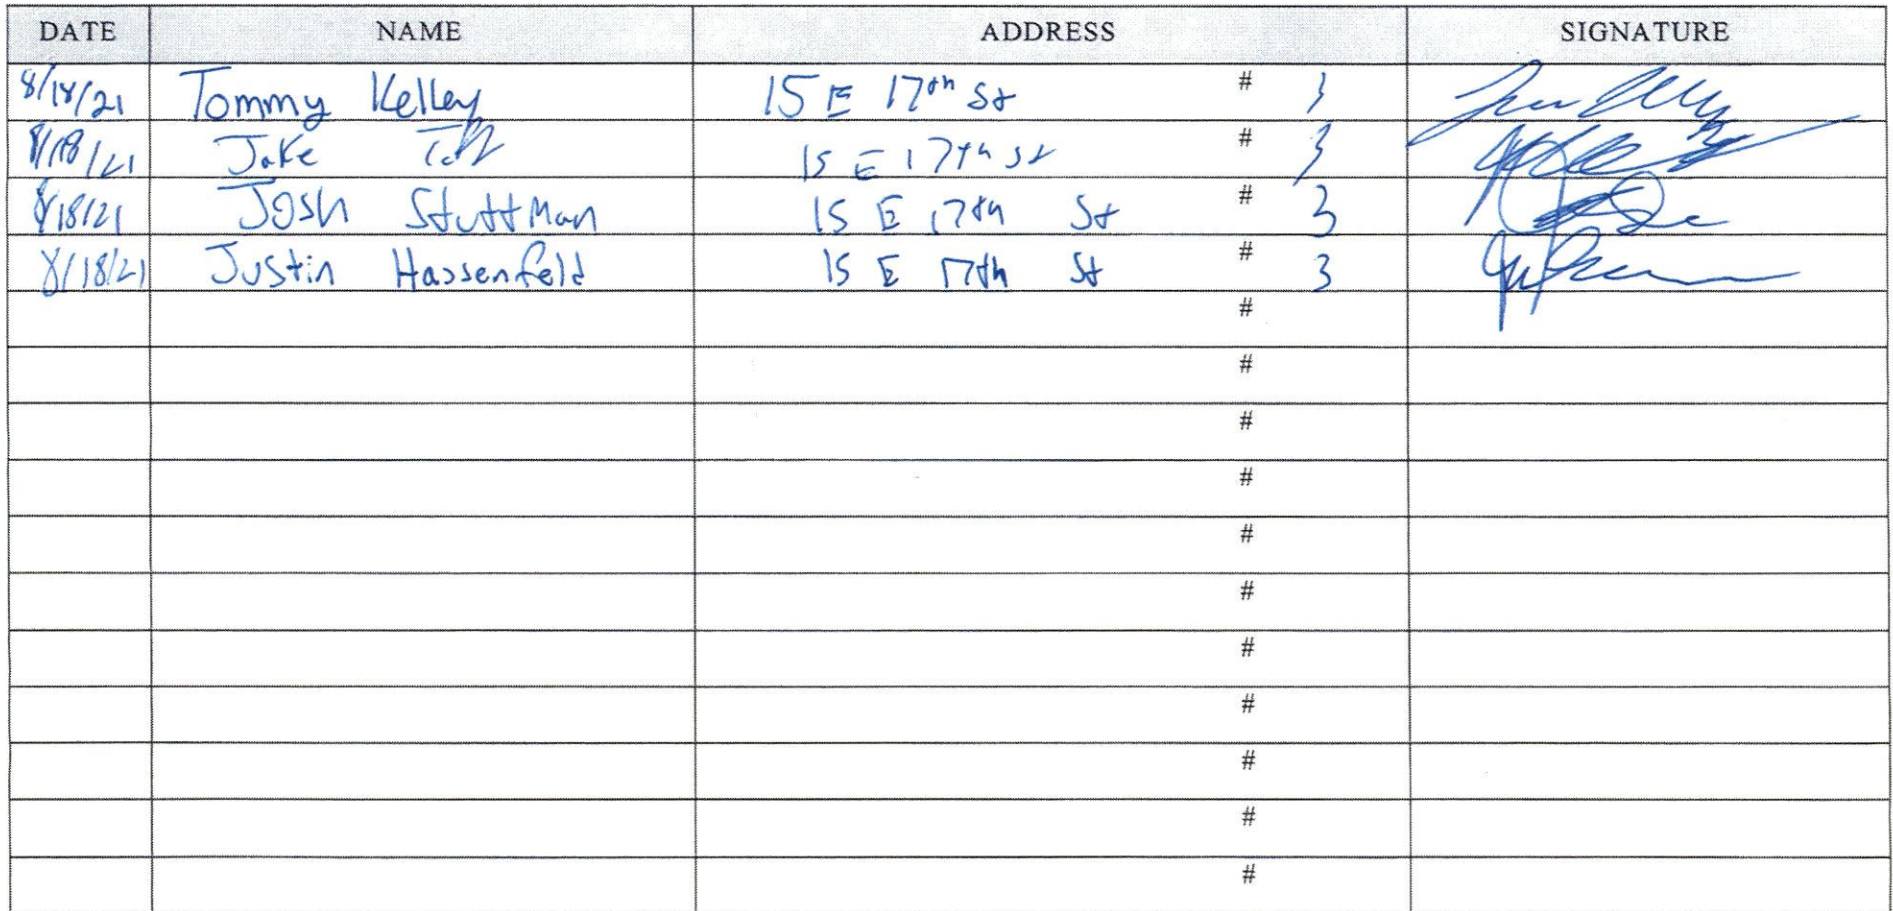 DATE NAME ADDRESS SIGNATURE
8/18/21 Tommy Kelley 15 E 17th St # 3
8/18/21 Jake # 15 E 17th St 3
8/18/21 Josh Stuttman 15 E 17th St # 3
8/18/21 Justin Hassenfeld 15 E 17th St # 3
#
#
#
#
#
#
#
#
#
#
#